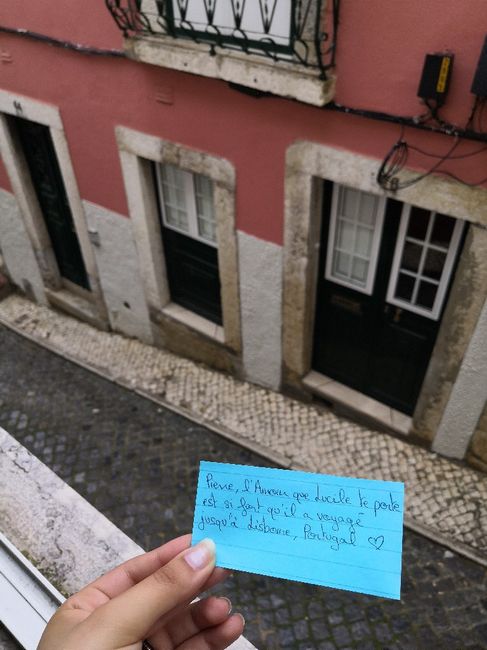 Pierre, l'Amour que Lucile te porte
est si fort qu'il a voyagé
jusqu'à Lisbonne, Portugal ♡